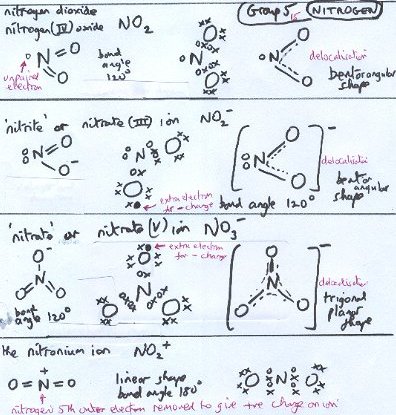 nitrogen dioxide
Group 5/15 NITROGEN
nitrogen(IV) oxide NO2
N O O
unpaired electron
bond angle 120°
O N O
N O O
delocalisation
bent or angular shape
'nitrite' or nitrate(III) ion NO2-
N O O-
O N O
extra electron for - charge
bond angle 120°
N O O -
delocalisation
bent or angular shape
'nitrate' or nitrate(V) ion NO3-
O- N+ O O
bond angle 120°
extra electron for - charge
O N O O
O N O O -
delocalisation
trigonal planar shape
the nitronium ion NO2+
O=N+=O
linear shape
bond angle 180°
O N O
nitrogen 5th outer electron removed to give +ve charge on ion